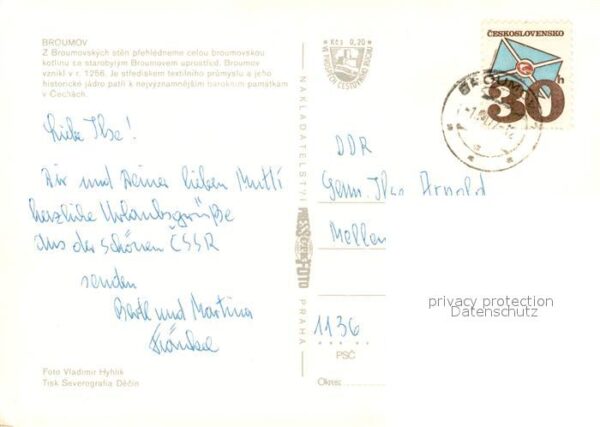 BROUMOV
Z Broumovských stěn přehlédneme celou broumovskou
kotlinu se starobylým Broumovem uprostřed. Broumov
vznikl v r. 1256. Je střediskem textilního průmyslu a jeho
historické jádro patří k nejvýznamnějším barokním památkám
v Čechách.
Kčs 0,20
VE PROSPĚCH CESTOVNÍHO RUCHU
ČESKOSLOVENSKO
30h
BROUMOV
Liebe Ilse!
Dir und Deiner lieben Mutti
herzliche Urlaubsgrüße
aus der schönen ČSSR
senden
und Martina
Fränkel
NAKLADATELSTVÍ
PRESSFOTO
PRAHA
DDR
Ilse Arnold
1136
PSČ
Okres:
privacy protection
Datenschutz
Foto Vladimír Hyhlík
Tisk Severografia Děčín